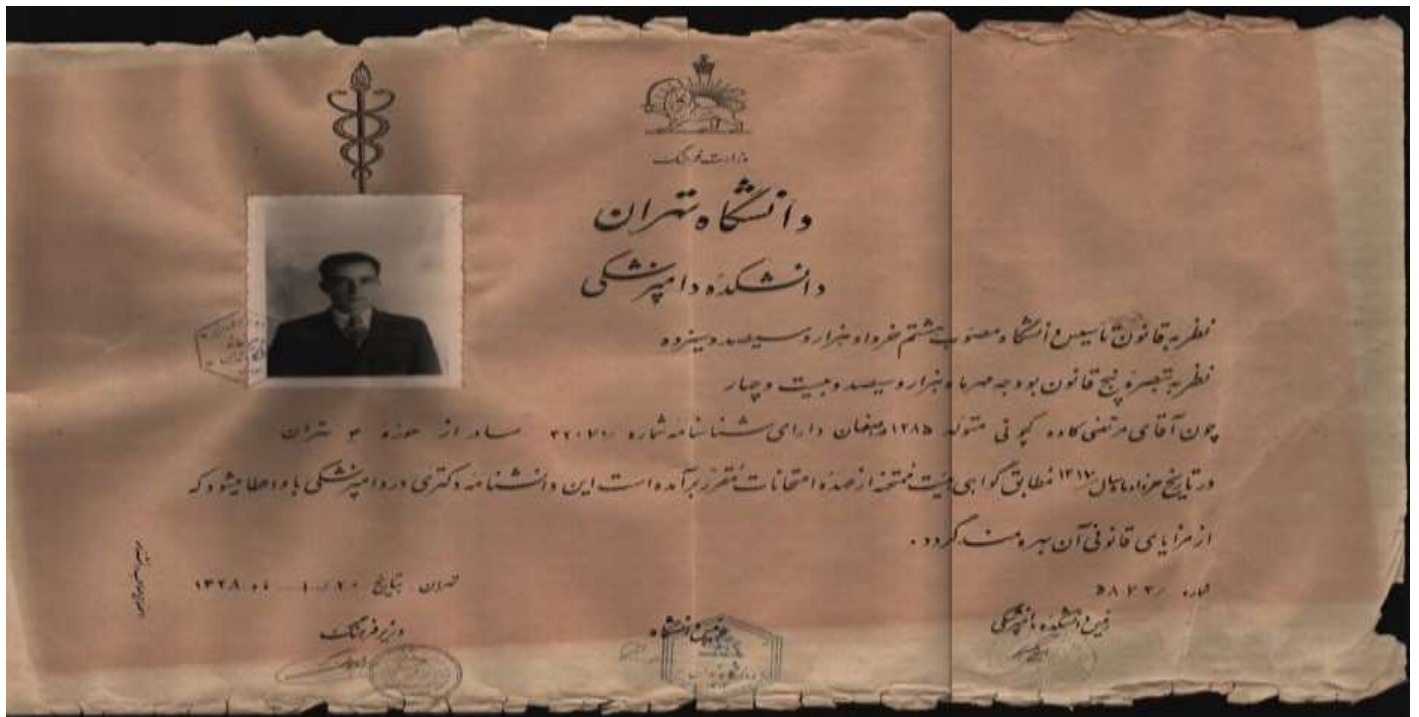 وزارت فرهنگ
دانشگاه تهران
دانشکده دامپزشکی
نظر به قانون تاسیس دانشگاه مصوب هشتم خرداد هزار و سیصد و سیزده
نظر به تبصره پنج قانون بودجه مهرماه هزار و سیصد و بیست و چهار
چون آقای مرتضی کاوه متولد ۱۲۸۵ دارای شناسنامه شماره صادر از حوزه ۴ تهران
در تاریخ خرداد ماه سال ۱۳۱۷ مطابق گواهی هیئت ممتحنه از عهده امتحانات مقرر برآمده است این دانشنامه دکتری در دامپزشکی باو اعطا میشود که
از مزایای قانونی آن بهره مند گردد .
شماره ۵۸۷۳/
تهران بتاریخ ۲۰ / ۱۰ ماه ۱۳۲۸
رئیس دانشکده دامپزشکی
رئیس دانشگاه
وزیر فرهنگ